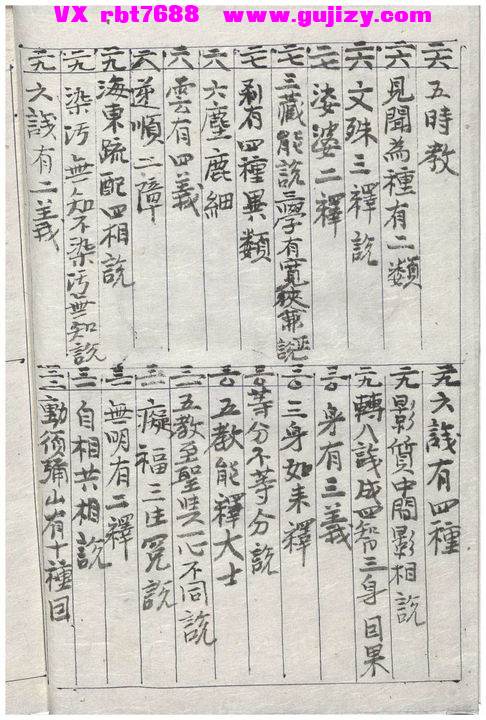 VX rbt7688 www.gujizy.com
六 五時教
六 見聞為種有二類
六 文殊三釋説
七 婆婆二釋
七 三藏能説三學有寬狹兼正説
七 剎有四種異類
六 六塵麁細
六 雲有四義
六 逆順二障
九 海東疏配四相説
九 染污無知不染污無知説
九 六識有二義
九 六識有四種
九 影質中間影相説
九 轉八識成四智三身因果
三十 身有三義
三十 三身如来釋
三十 等分不等分説
三十 五教能釋大士
三一 五教至聖 心不同説
三一 癡福三生冤説
三一 無明有二釋
三一 自相共相説
三一 動須彌山有十種因